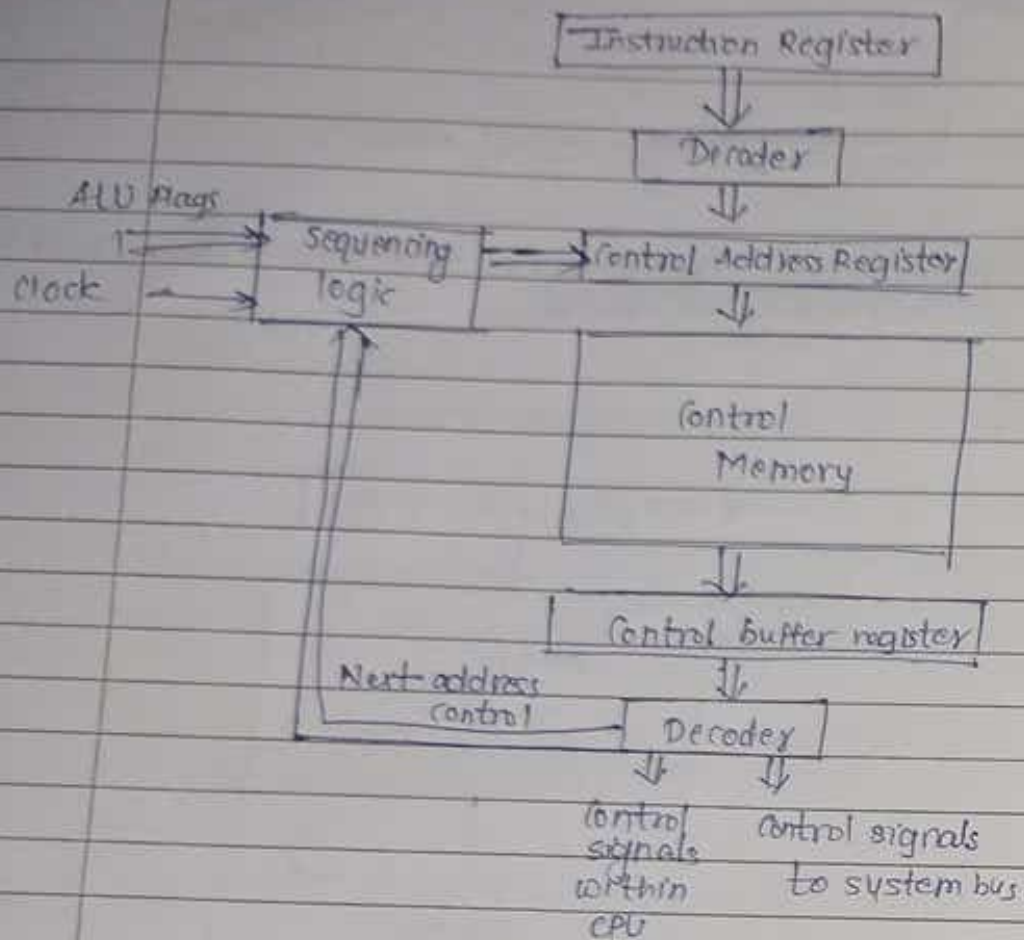 Instruction Register
Decoder
ALU Flags
Sequencing
logic
Control Address Register
Clock
Control
Memory
Control buffer register
Next address
control
Decoder
Control
signals
within
CPU
control signals
to system bus